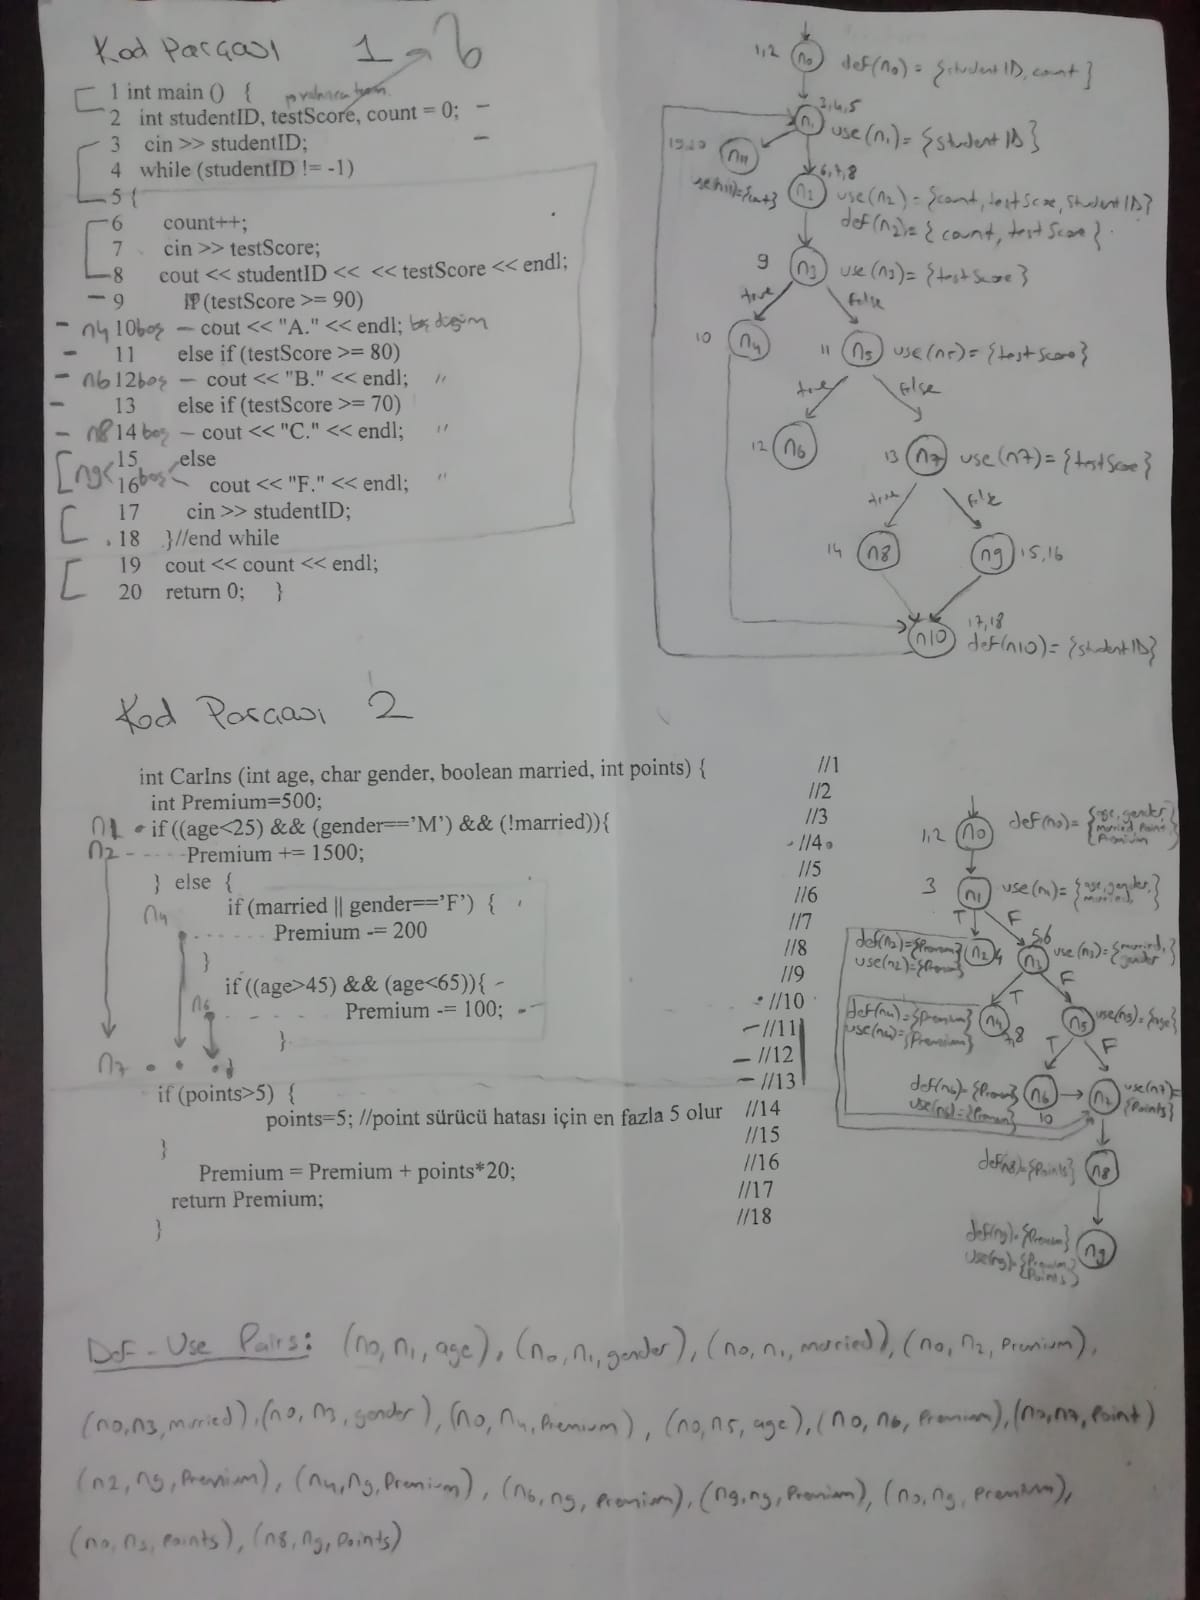 Kod Parçası 1 → b
1 int main () {
2 int studentID, testScore, count = 0; –
3 cin >> studentID; –
4 while (studentID != -1)
5 {
6 count++;
7 cin >> testScore;
8 cout << studentID << << testScore << endl;
– 9 if (testScore >= 90)
– n4 10 boş – cout << "A." << endl; boş düğüm
– 11 else if (testScore >= 80)
– n6 12 boş – cout << "B." << endl; "
– 13 else if (testScore >= 70)
– n8 14 boş – cout << "C." << endl; "
n9 15 else
16 boş cout << "F." << endl; "
17 cin >> studentID;
18 }//end while
19 cout << count << endl;
20 return 0; }
1,2 n0 def(n0) = {studentID, count}
3,4,5
n1 use(n1) = {studentID}
19,20 n11
6,7,8
n2 use(n2) = {count, testScore, studentID}
def(n2) = {count, testScore}
9 n3 use(n3) = {testScore}
true False
10 n4 11 n5 use(n5) = {testScore}
true False
12 n6 13 n7 use(n7) = {testScore}
true False
14 n8 n9 15,16
17,18
n10 def(n10) = {studentID}
Kod Parçası 2
int CarIns (int age, char gender, boolean married, int points) { //1
int Premium=500; //2
n1 if ((age<25) && (gender=='M') && (!married)){ //3
n2 Premium += 1500; //4
} else { //5
if (married || gender=='F') { //6
n4 Premium -= 200 //7
} //8
if ((age>45) && (age<65)){ – //9
n6 Premium -= 100; //10
} //11
n7 //12
if (points>5) { //13
points=5; //point sürücü hatası için en fazla 5 olur //14
} //15
Premium = Premium + points*20; //16
return Premium; //17
} //18
1,2 n0 def(n0) = {age, gender, married, Point, Premium}
3 n1 use(n1) = {age, gender, married}
T F
def(n2)={Premium} n2 4 5,6 n3 use(n3) = {married, gender}
use(n2)={Premium}
T F
def(n4)={Premium} n4 7,8 n5 use(n5)={age}
use(n4)={Premium}
T F
def(n6)={Premium} n6 → n7 use(n7)= {Points}
use(n6)={Premium} 10
def(n8)={Points} n8
def(n9)={Premium} n9
use(n9)={Premium, Points}
Def - Use Pairs: (n0, n1, age), (n0, n1, gender), (n0, n1, married), (n0, n2, Premium),
(n0, n3, married), (n0, n3, gender), (n0, n4, Premium), (n0, n5, age), (n0, n6, Premium), (n0, n7, Point)
(n2, n9, Premium), (n4, n9, Premium), (n6, n9, Premium), (n9, n9, Premium), (n0, n9, Premium),
(n0, n9, Points), (n8, n9, Points)